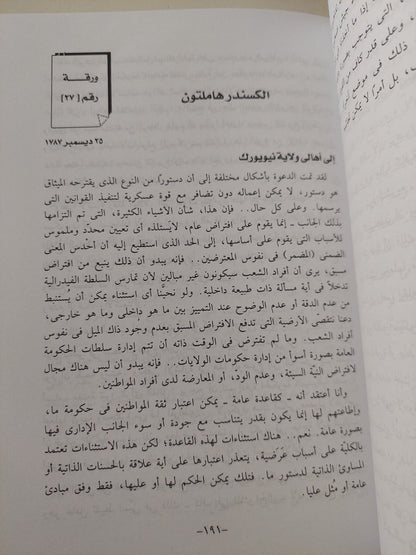 ورقة
رقم [٢٧]
الكسندر هاملتون
٢٥ ديسمبر ١٧٨٧
إلى أهالى ولاية نيويورك
لقد تمت الدعوة بأشكال مختلفة إلى أن دستورا من النوع الذى يقترحه الميثاق
هو دستور، لا يمكن إعماله دون تضافر مع قوة عسكرية لتنفيذ القوانين التى
يرسمها. وعلى كل حال.. فإن هذا، شأن الأشياء الكثيرة، التى تم التزامها
بذلك الجانب ـ إنما يقوم على افتراض عام، لايستلذه أى تعيين محدّد وملموس
للأسباب التى يقوم على أساسها، إلى الحد الذى استطيع إليه أن أخدس المعنى
الضمنى (المضمر) فى نفوس المعترضين.. فإنه يبدو أن ذلك ينبع من افتراض
مسبق، يرى أن أفراد الشعب سيكونون غير مبالين لان تمارس السلطة الفيدرالية
تدخلاً فى أية مسألة ذات طبيعة داخلية. ولو نحينا أى استثناء يمكن أن يُستنبط
من عدم الدقة أو عدم الوضوح عند التمييز بين ما هو داخلى وما هو خارجى،
دعنا نتقصى الأرضية التى تدفع الافتراض المسبق بعدم وجود ذاك الميل فى نفوس
أفراد الشعب. وما لم تفترض فى الوقت ذاته أن تتم إدارة سلطات الحكومة
العامة بصورة أسوأ من إدارة حكومات الولايات.. فإنه يبدو أن ليس هناك مجال
لافتراض النيّة السيئة، وعدم الودّ، أو المعارضة لدى أفراد المواطنين.
وأنا أعتقد أنه ـ كقاعدة عامة ـ يمكن اعتبار ثقة المواطنين فى حكومة ما،
وإطاعتهم لها إنما يكون بقدر يتناسب مع جودة أو سوء الجانب الإدارى فيها
بصورة عامة. نعم.. هناك استثناءات لهذه القاعدة؛ لكن هذه الاستثناءات تعتمد
بالكلية على أسباب عَرَضية، يتعذر اعتبارها على أية علاقة بالحسنات الذاتية أو
المساوئ الذاتية لدستور ما. فتلك يمكن الحكم لها أو عليها، فقط وفق مبادئ
عامة أو مثُل عليا.
-١٩١-